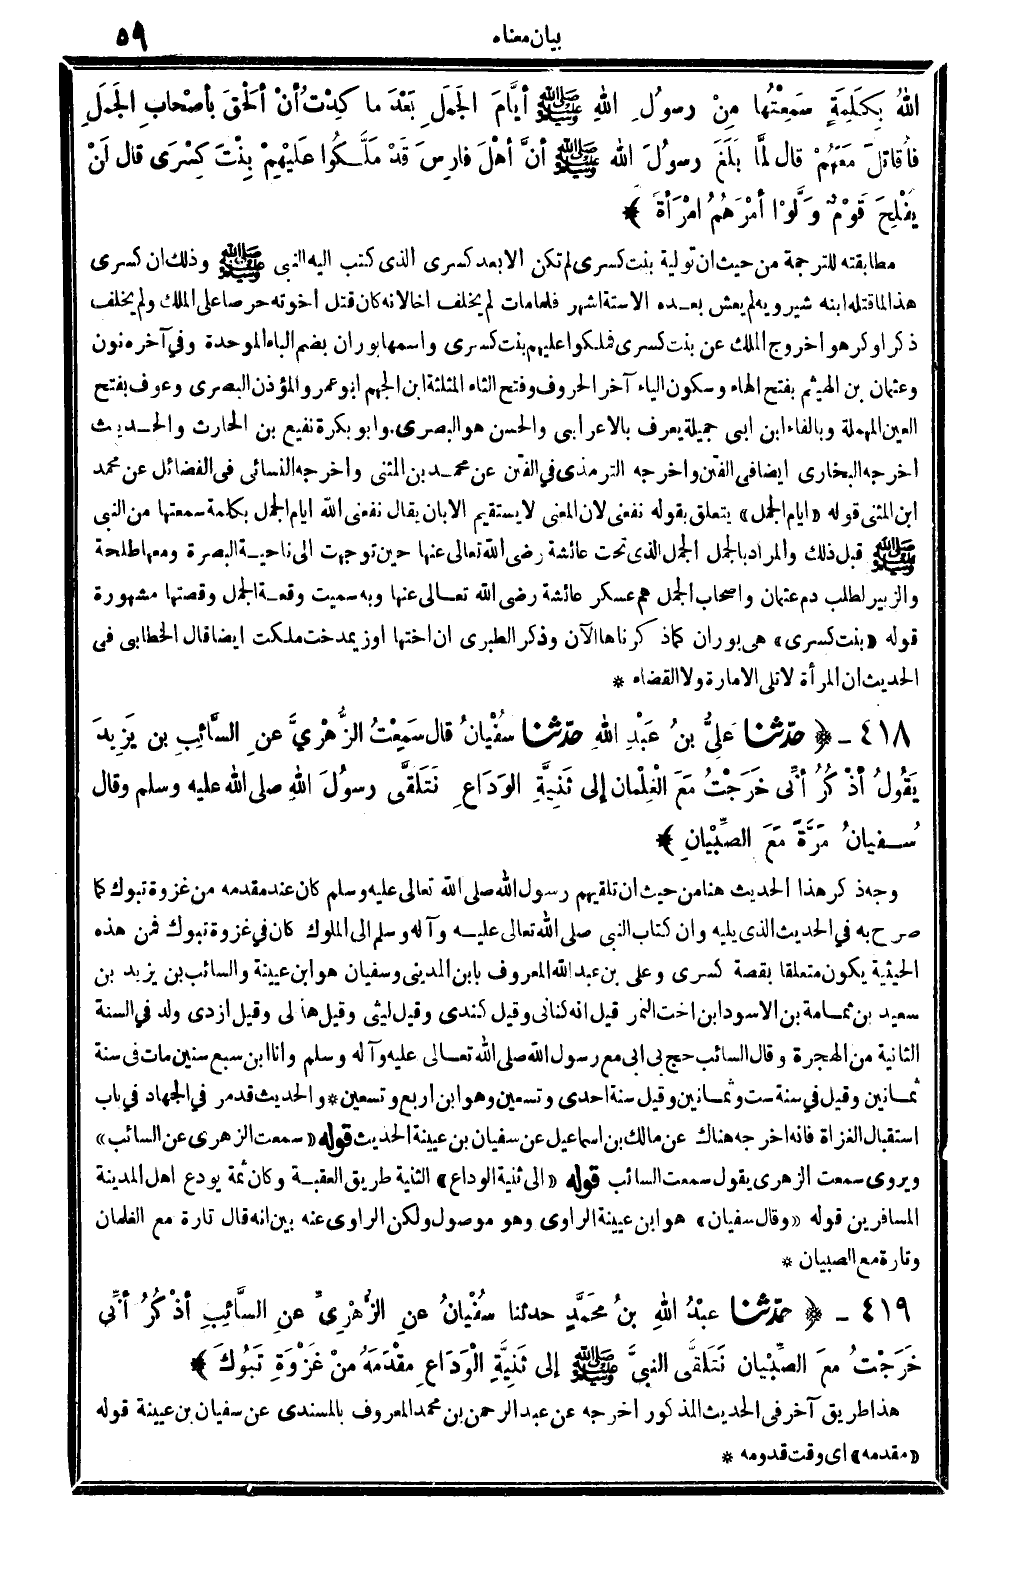 بيان معناه ٥٩
اللهُ بِكَلِمَةٍ سَمِعْتُها مِنْ رسولِ اللهِ ﷺ أيَّامَ الجَمَلِ بَعْدَ ما كِدْتُ أنْ ألْحَقَ بأصْحابِ الجَمَلِ
فأُقاتِلَ مَعَهُمْ قال لمَّا بَلَغَ رسولَ الله ﷺ أنَّ أهْلَ فارِسَ قَدْ مَلَّكُوا عَلَيْهِمْ بِنْتَ كِسْرَى قال لَنْ
يُفْلِحَ قَوْمٌ وَلَّوْا أمْرَهُمُ امْرَأةً ﴾
مطابقته للترجمة من حيث ان تولية بنت كسرى لم تكن الا بعد كسرى الذى كتب اليه النبى ﷺ وذلك ان كسرى
هذا لما قتله ابنه شيرويه لم يعش بعده الا ستة اشهر فلما مات لم يخلف اخا لانه كان قتل اخوته حرصا على الملك ولم يخلف
ذكرا وكرهوا خروج الملك عن بنت كسرى فملكوا عليهم بنت كسرى واسمها بوران بضم الباء الموحدة وفي آخره نون
وعثمان بن الهيثم بفتح الهاء وسكون الياء آخر الحروف وفتح الثاء المثلثة ابن الجهم ابو عمرو المؤذن البصرى وعوف بفتح
العين المهملة وبالفاء ابن ابى جميلة يعرف بالاعرابى والحسن هو البصرى. وابو بكرة نفيع بن الحارث والحديث
اخرجه البخارى ايضا فى الفتن واخرجه الترمذى في الفتن عن محمد بن المثنى واخرجه النسائى فى الفضائل عن محمد
ابن المثنى قوله «ايام الجمل» يتعلق بقوله نفعنى لان المعنى لا يستقيم الا بان يقال نفعنى الله ايام الجمل بكلمة سمعتها من النبى
ﷺ قبل ذلك والمراد بالجمل الجمل الذى تحت عائشة رضى الله تعالى عنها حين توجهت الى ناحية البصرة ومعها طلحة
والزبير لطلب دم عثمان واصحاب الجمل هم عسكر عائشة رضى الله تعالى عنها وبه سميت وقعة الجمل وقصتها مشهورة
قوله «بنت كسرى» هى بوران كما ذكرناها الآن وذكر الطبرى ان اختها اوزيمدخت ملكت ايضا قال الخطابى فى
الحديث ان المرأة لا تلى الامارة ولا القضاء *
٤١٨ - ﴿ حدّثنا عَلِيُّ بنُ عَبْدِ اللهِ حدّثنا سفُيْانُ قال سَمِعْتُ الزُّهْرِيَّ عنِ السَّائِبِ بن يَزِيدَ
يَقُولُ أذْكُرُ أنِّى خَرَجْتُ مَعَ الغِلْمان إلى ثَنِيَّةِ الوَدَاعِ نَتَلَقَّى رسولَ اللهِ صلى الله عليه وسلم وقال
سُفيانُ مَرَّةً مَعَ الصِّبْيانِ ﴾
وجه ذكر هذا الحديث هنا من حيث ان تلقيهم رسول الله صلى الله تعالى عليه وسلم كان عند مقدمه من غزوة تبوك كما
صرح به في الحديث الذى يليه وان كتاب النبى صلى الله تعالى عليه وآله وسلم الى الملوك كان في غزوة تبوك فمن هذه
الحيثية يكون متعلقا بقصة كسرى وعلى بن عبد الله المعروف بابن المدينى وسفيان هو ابن عيينة والسائب بن يزيد بن
سعيد بن ثمامة بن الاسود ابن اخت النمر قيل انه كنانى وقيل كندى وقيل ليثى وقيل هذلى وقيل ازدى ولد في السنة
الثانية من الهجرة وقال السائب حج بى ابى مع رسول الله صلى الله تعالى عليه وآله وسلم وانا ابن سبع سنين مات فى سنة
ثمانين وقيل في سنة ست وثمانين وقيل سنة احدى وتسعين وهو ابن اربع وتسعين * والحديث قد مر في الجهاد في باب
استقبال الغزاة فانه اخرجه هناك عن مالك بن اسماعيل عن سفيان بن عيينة الحديث قوله «سمعت الزهرى عن السائب»
ويروى سمعت الزهرى يقول سمعت السائب قوله «الى ثنية الوداع» الثنية طريق العقبة وكان ثمة يودع اهل المدينة
المسافرين قوله «وقال سفيان» هو ابن عيينة الراوى وهو موصول ولكن الراوى عنه بين انه قال تارة مع الغلمان
وتارة مع الصبيان *
٤١٩ - ﴿ حدّثنا عبْدُ اللهِ بنُ محَمَّدٍ حدثنا سفُيْانُ عنِ الزُّهْرِىِّ عنِ السَّائِبِ أذْكُرُ أنِّى
خَرَجْتُ معَ الصِّبْيان نَتَلَقَّى النبيَّ ﷺ إلى ثَنِيَّةِ الْوَدَاعِ مَقْدَمَهُ منْ غَزْوَةِ تَبُوكَ ﴾
هذا طريق آخر فى الحديث المذكور اخرجه عن عبد الرحمن بن محمد المعروف بالمسندى عن سفيان بن عيينة قوله
«مقدمه» اى وقت قدومه *